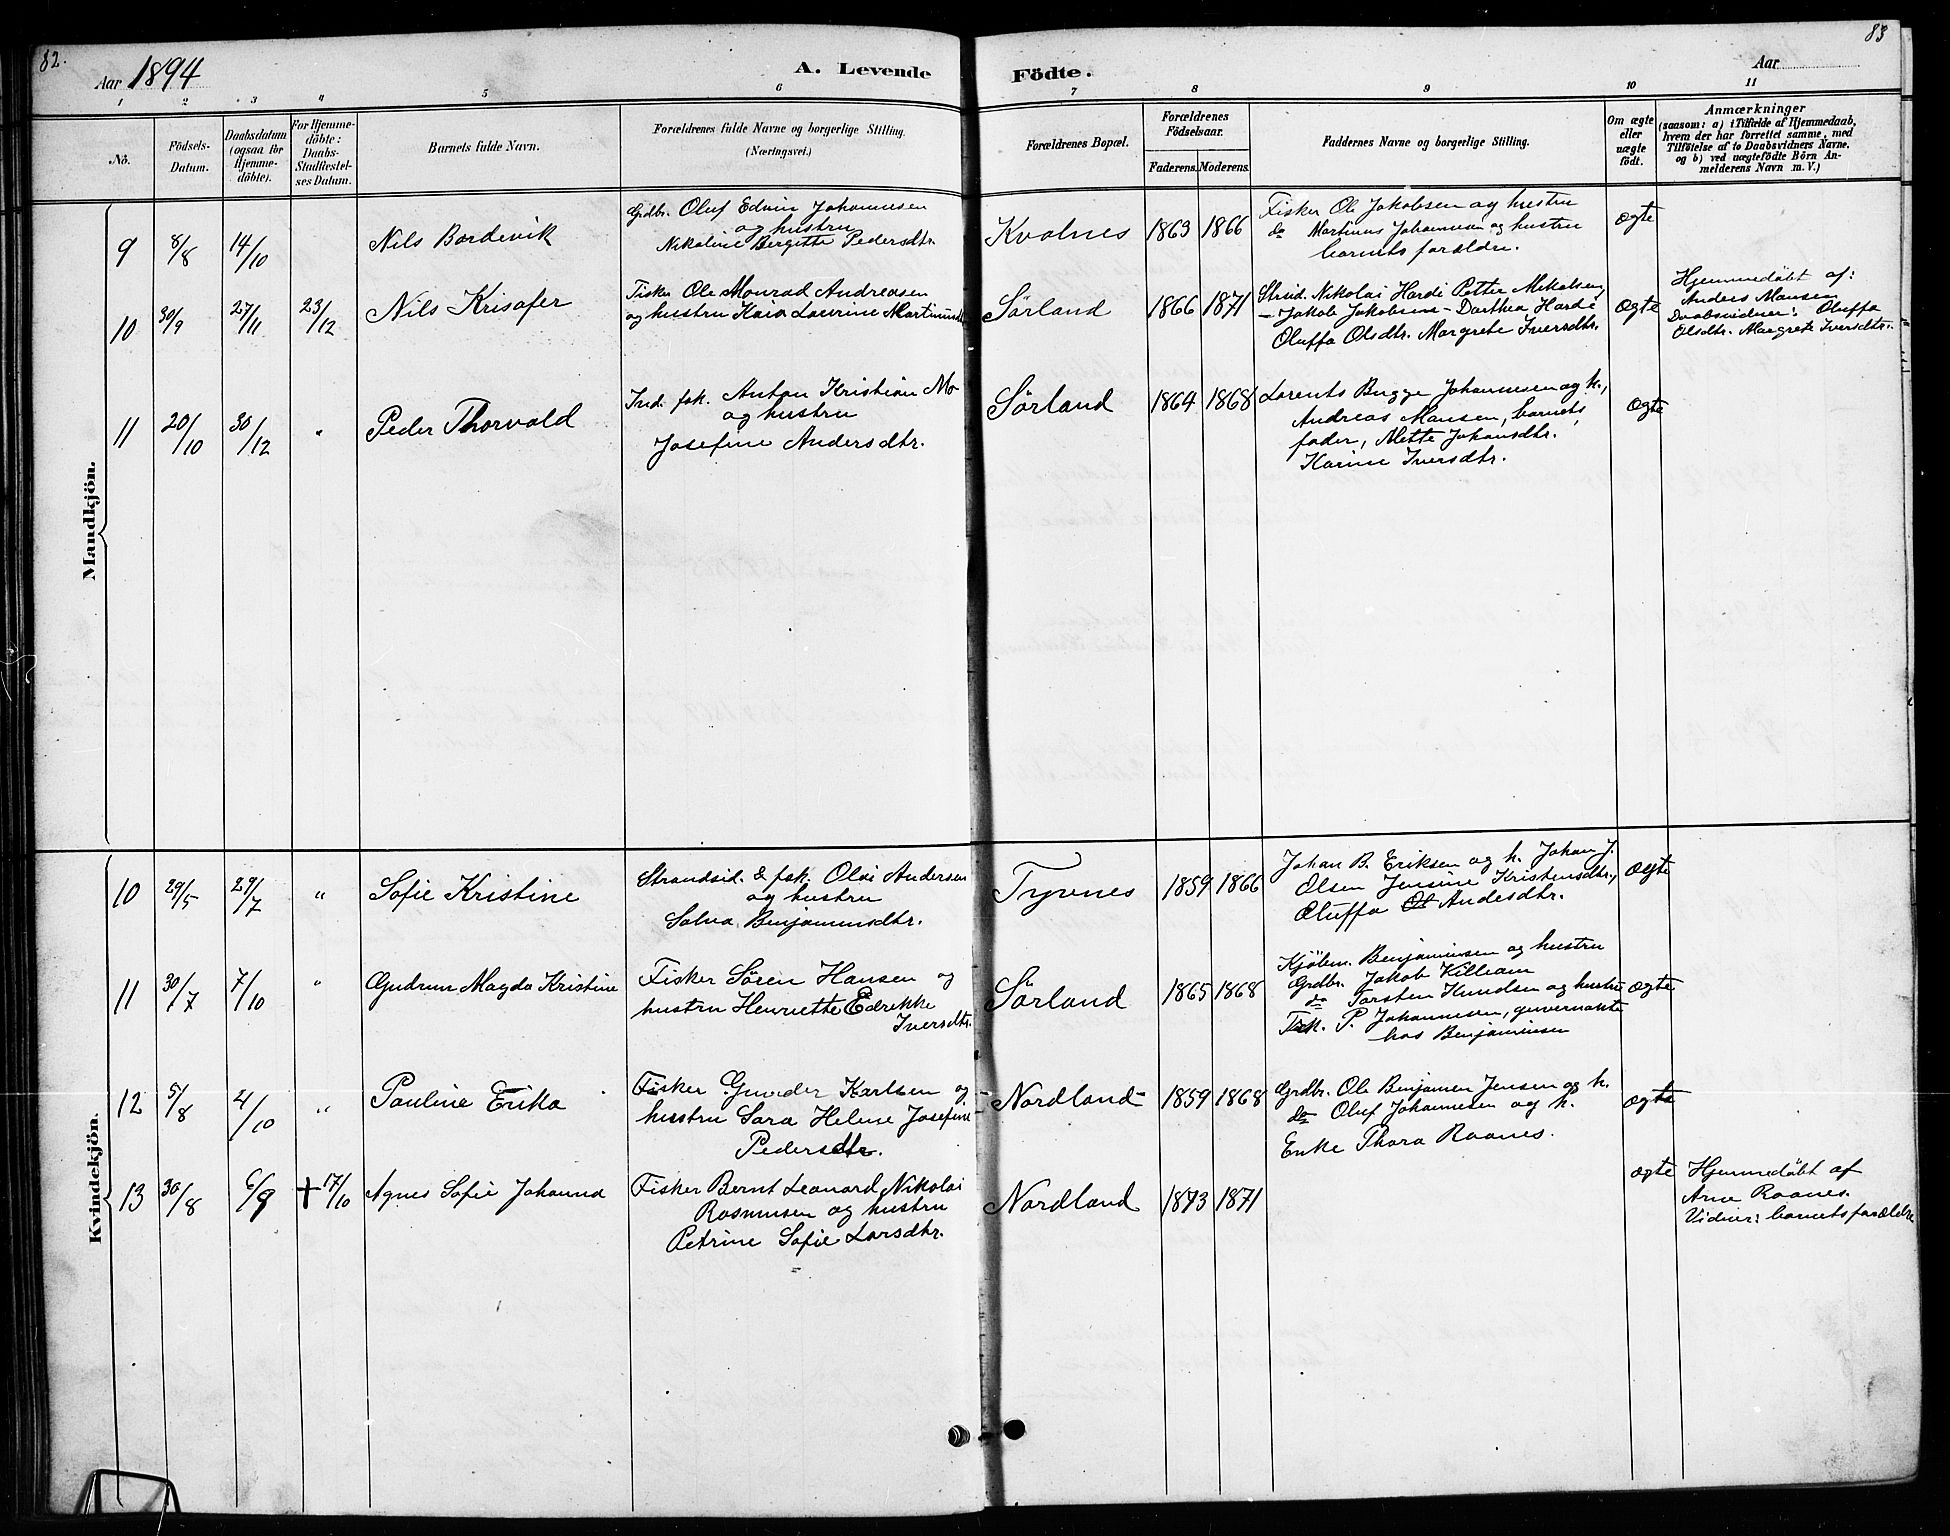 82.
83
Aar 1894
A. Levende Födte.
Aar
1 2 3 4 5 6 7 8 9 10 11
No.
Födsels-Datum.
Daabsdatum (ogsaa for Hjemme-döbte).
For Hjemme-döbte: Daabs-Stadfæstel-ses Datum.
Barnets fulde Navn.
Forældrenes fulde Navne og borgerlige Stilling.
(Næringsvei.)
Forældrenes Bopæl.
Forældrenes Födselsaar.
Faderens. Moderens.
Faddernes Navne og borgerlige Stilling.
Om ægte eller uægte født.
Anmærkninger
(saasom: a) i Tilfælde af Hjemmedaab,
hvem der har forrettet samme, med
Tilföielse af to Daabsvidners Navne.
og b) ved uægtefödte Börn An-
melderens Navn m. V.)
Mandkjön.
9 8/8 14/10 Nils Bordevik
Grdbr. Oluf Edvin Johannesen
og hustru
Nikoline Bergitte Pedersdtr.
Kvalnes 1863 1866
Fisker Ole Jakobsen og hustru
do Martinus Johannesen og hustru
barnets forældre.
ægte
10 30/9 27/11 23/12 Nils Krisofer
Fisker Ole Monrad Andreasen
og hustru Kaia Laurine Martinusdtr
Sørland 1866 1871
Strsid. Nikolai Hardi Petter Mikalsen,
- Jakob Jakobsen - Dorthea Hardi
Oluffa Olsdtr. Margrete Iversdtr.
ægte
Hjemmedøbt af:
Anders Mansen
Daabsvidner: Oluffa
Olsdtr. Margrete Iversdtr.
11 20/10 30/12 " Peder Thorvald
Ind. fsk. Anton Kristian Mo
og hustru
Josefine Andersdtr.
Sørland 1864 1868
Lorents Bugge Johannesen og h.,
Andreas Mansen, barnets
fader, Mette Johansdtr.
Karine Iversdtr.
ægte
Kvindekjön.
10 29/5 29/7 " Sofie Kristine
Strandsid. & fsk. Olai Andersen
og hustru
Salva Benjaminsdtr.
Tyvnes 1859 1866
Johan B. Eriksen og h. Johan J.
Olsen Jensine Kristensdtr.,
Oluffa Ol Andesdtr.
ægte
11 30/7 7/10 " Gudrun Magda Kristine
Fisker Sören Hansen og
hustru Henriette Edrikke
Iversdtr.
Sørland 1865 1868
Kjøbm. Benjaminsen og hustru
Grdbr. Jakob Killeam
do Torsten Knudsen og hustru
Fsk. P. Johannesen, guvernante
hos Benjaminsen
ægte
12 5/8 4/10 " Pauline Erika
Fisker Gunder Karlsen og
hustru Sara Helene Josefine
Pedersdtr.
Nordland 1859 1868
Grdbr. Ole Benjamin Jensen og h.
do Oluf Johannesen og h.
Enke Thora Raanes.
ægte
13 30/8 6/9 + 17/10 Agnes Sofie Johanna
Fisker Bernt Leonard Nikolai
Rasmusen og hustru
Petrine Sofie Larsdtr.
Nordland 1873 1871
ægte
Hjemmedøbt af
Arne Raanes.
Vidner: barnets forældre